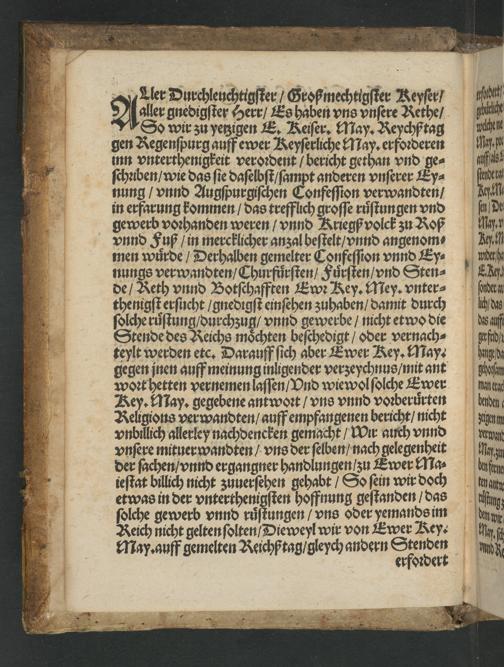 ALler Durchleuchtigster / Großmechtigster Keyser /
aller gnedigster Herr / Es haben vns vnsere Rethe /
So wir zu yetzigen E. Keiser. May. Reychßtag
gen Regenspurg auff ewer Keyserliche May. erforderen
inn vnterthenigkeit verordent / bericht gethan vnd ge-
schriben / wie das sie daselbst / sampt anderen vnserer Ey-
nung / vnnd Augspurgischen Confession verwandten /
in erfarung kommen / das trefflich grosse rüstungen vnd
gewerb vorhanden weren / vnnd Kriegß volck zu Roß
vnnd Fuß / in mercklicher anzal bestelt / vnnd angenom-
men würde / Derhalben gemelter Confession vnnd Ey-
nungs verwandten / Churfürsten / Fürsten / vnd Sten-
de / Reth vnnd Botschafften Ewr Key. Mey. vnter-
thenigst ersucht / gnedigst einsehen zuhaben / damit durch
solche rüstung / durchzug / vnnd gewerbe / nicht etwo die
Stende des Reichs möchten beschedigt / oder vernach-
teylt werden etc. Darauff sich aber Ewer Key. May.
gegen jnen auff meinung inligender verzeychnus / mit ant
wort hetten vernemen lassen / Vnd wiewol solche Ewer
Key. May. gegebene antwort / vns vnnd vorberürten
Religions verwandten / auff empfangenen bericht / nicht
vnbillich allerley nachdencken gemacht / Wir auch vnnd
vnsere mituerwandten / vns der selben / nach gelegenheit
der sachen / vnnd ergangner handlungen / zu Ewer Ma-
iestat billich nicht zuuersehen gehabt / So sein wir doch
etwas in der vnterthenigsten hoffnung gestanden / das
solche gewerb vnnd rüstungen / vns oder yemands im
Reich nicht gelten solten / Dieweyl wir von Ewer Key.
May. auff gemelten Reichßtag / gleych andern Stenden
erfordert